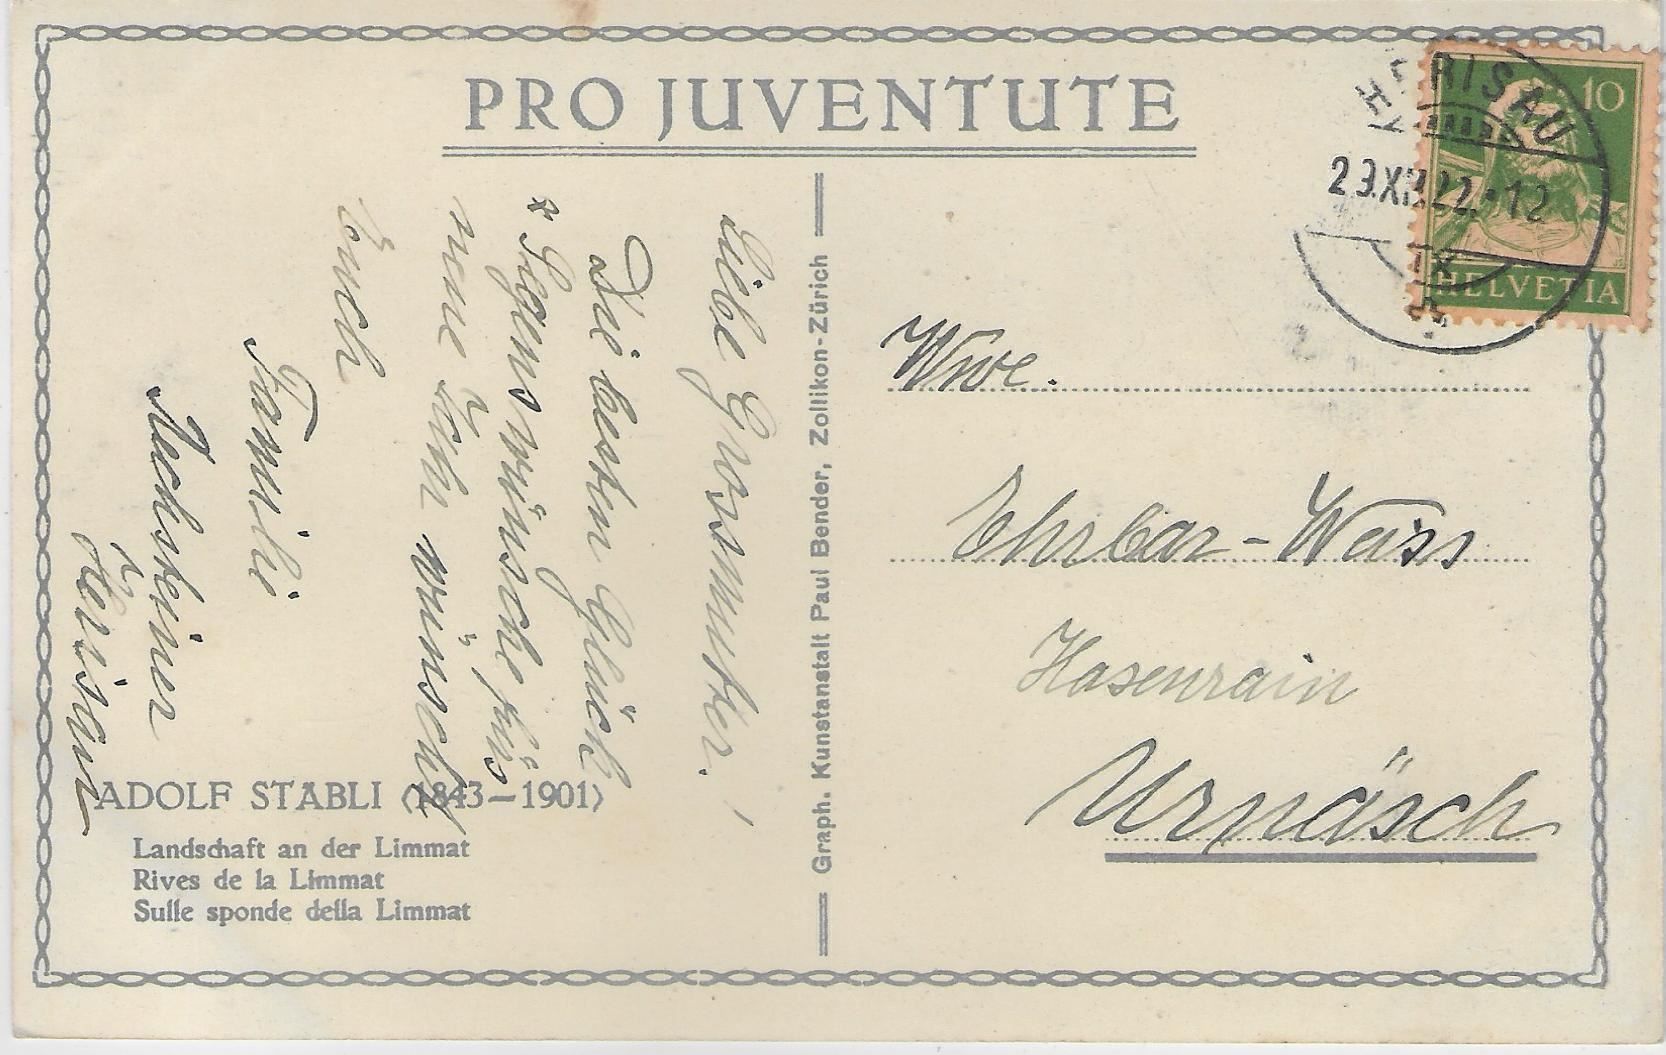 PRO JUVENTUTE
HERISAU
10
HELVETIA
Liebe Grossmutter!
Die besten Glück
& Segenswünsche für's
neue Jahr wünscht
Euch
Familie
Herisau
ADOLF STÄBLI (1843–1901)
Landschaft an der Limmat
Rives de la Limmat
Sulle sponde della Limmat
Graph. Kunstanstalt Paul Bender, Zollikon-Zürich
Wwe.
Ehrbar-Weiss
Hasenrain
Urnäsch